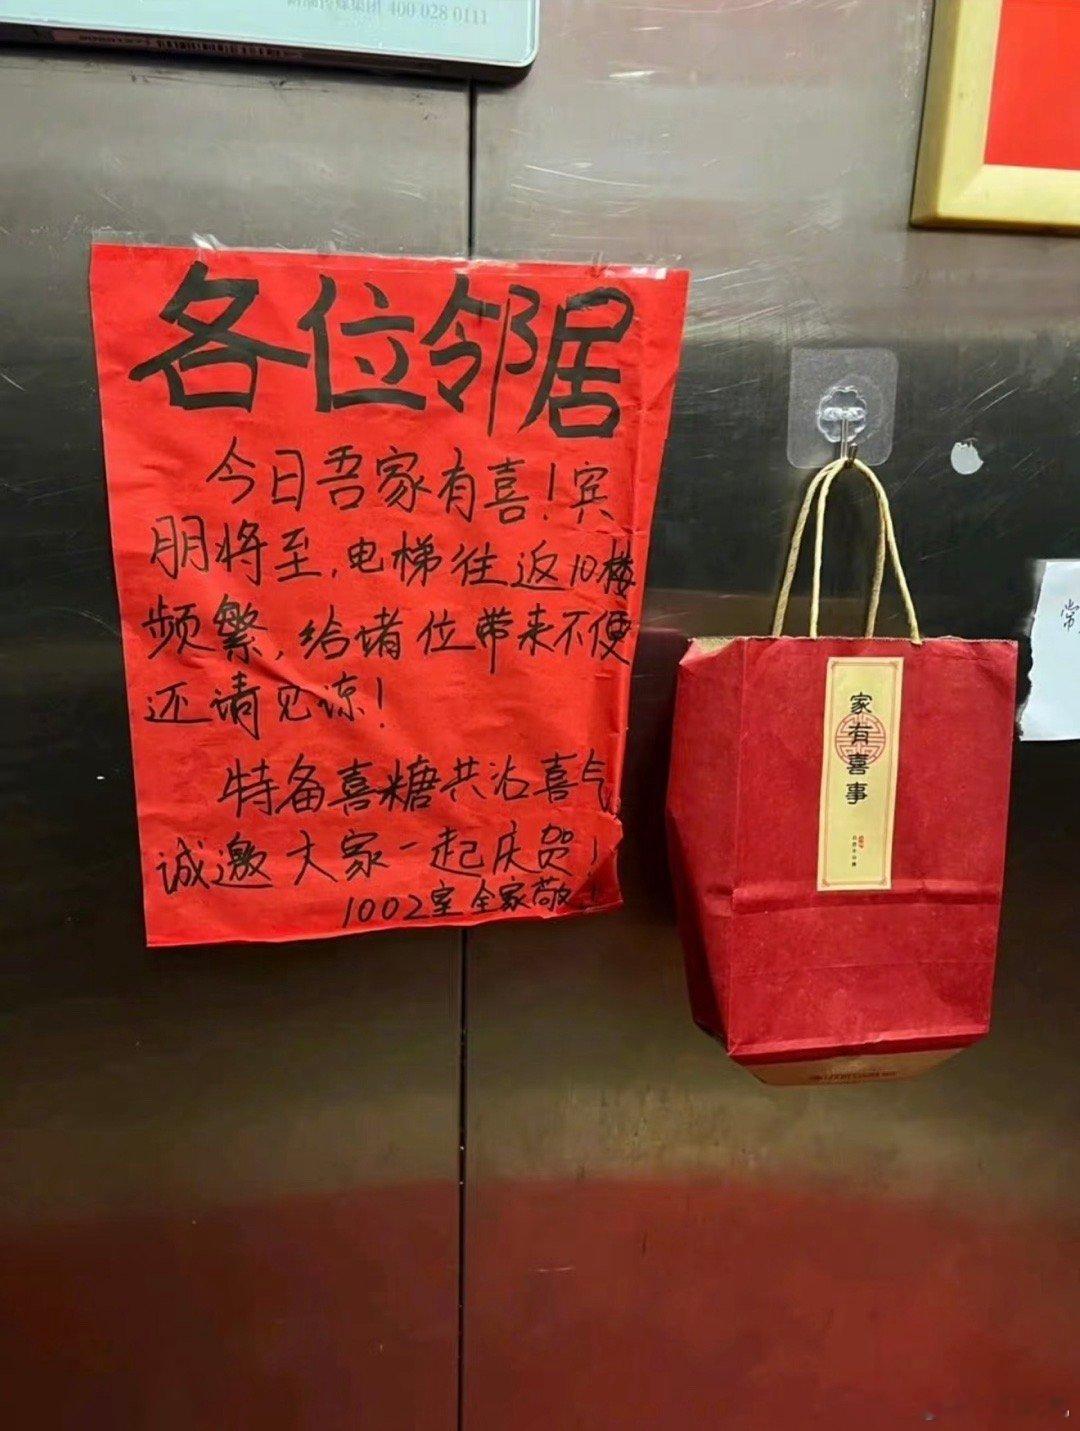 400 028 0111
各位邻居
今日吾家有喜！宾
朋将至，电梯往返10楼
频繁，给诸位带来不便
还请见谅！
特备喜糖共沾喜气
诚邀大家一起庆贺！
1002室全家敬
家有喜事
常